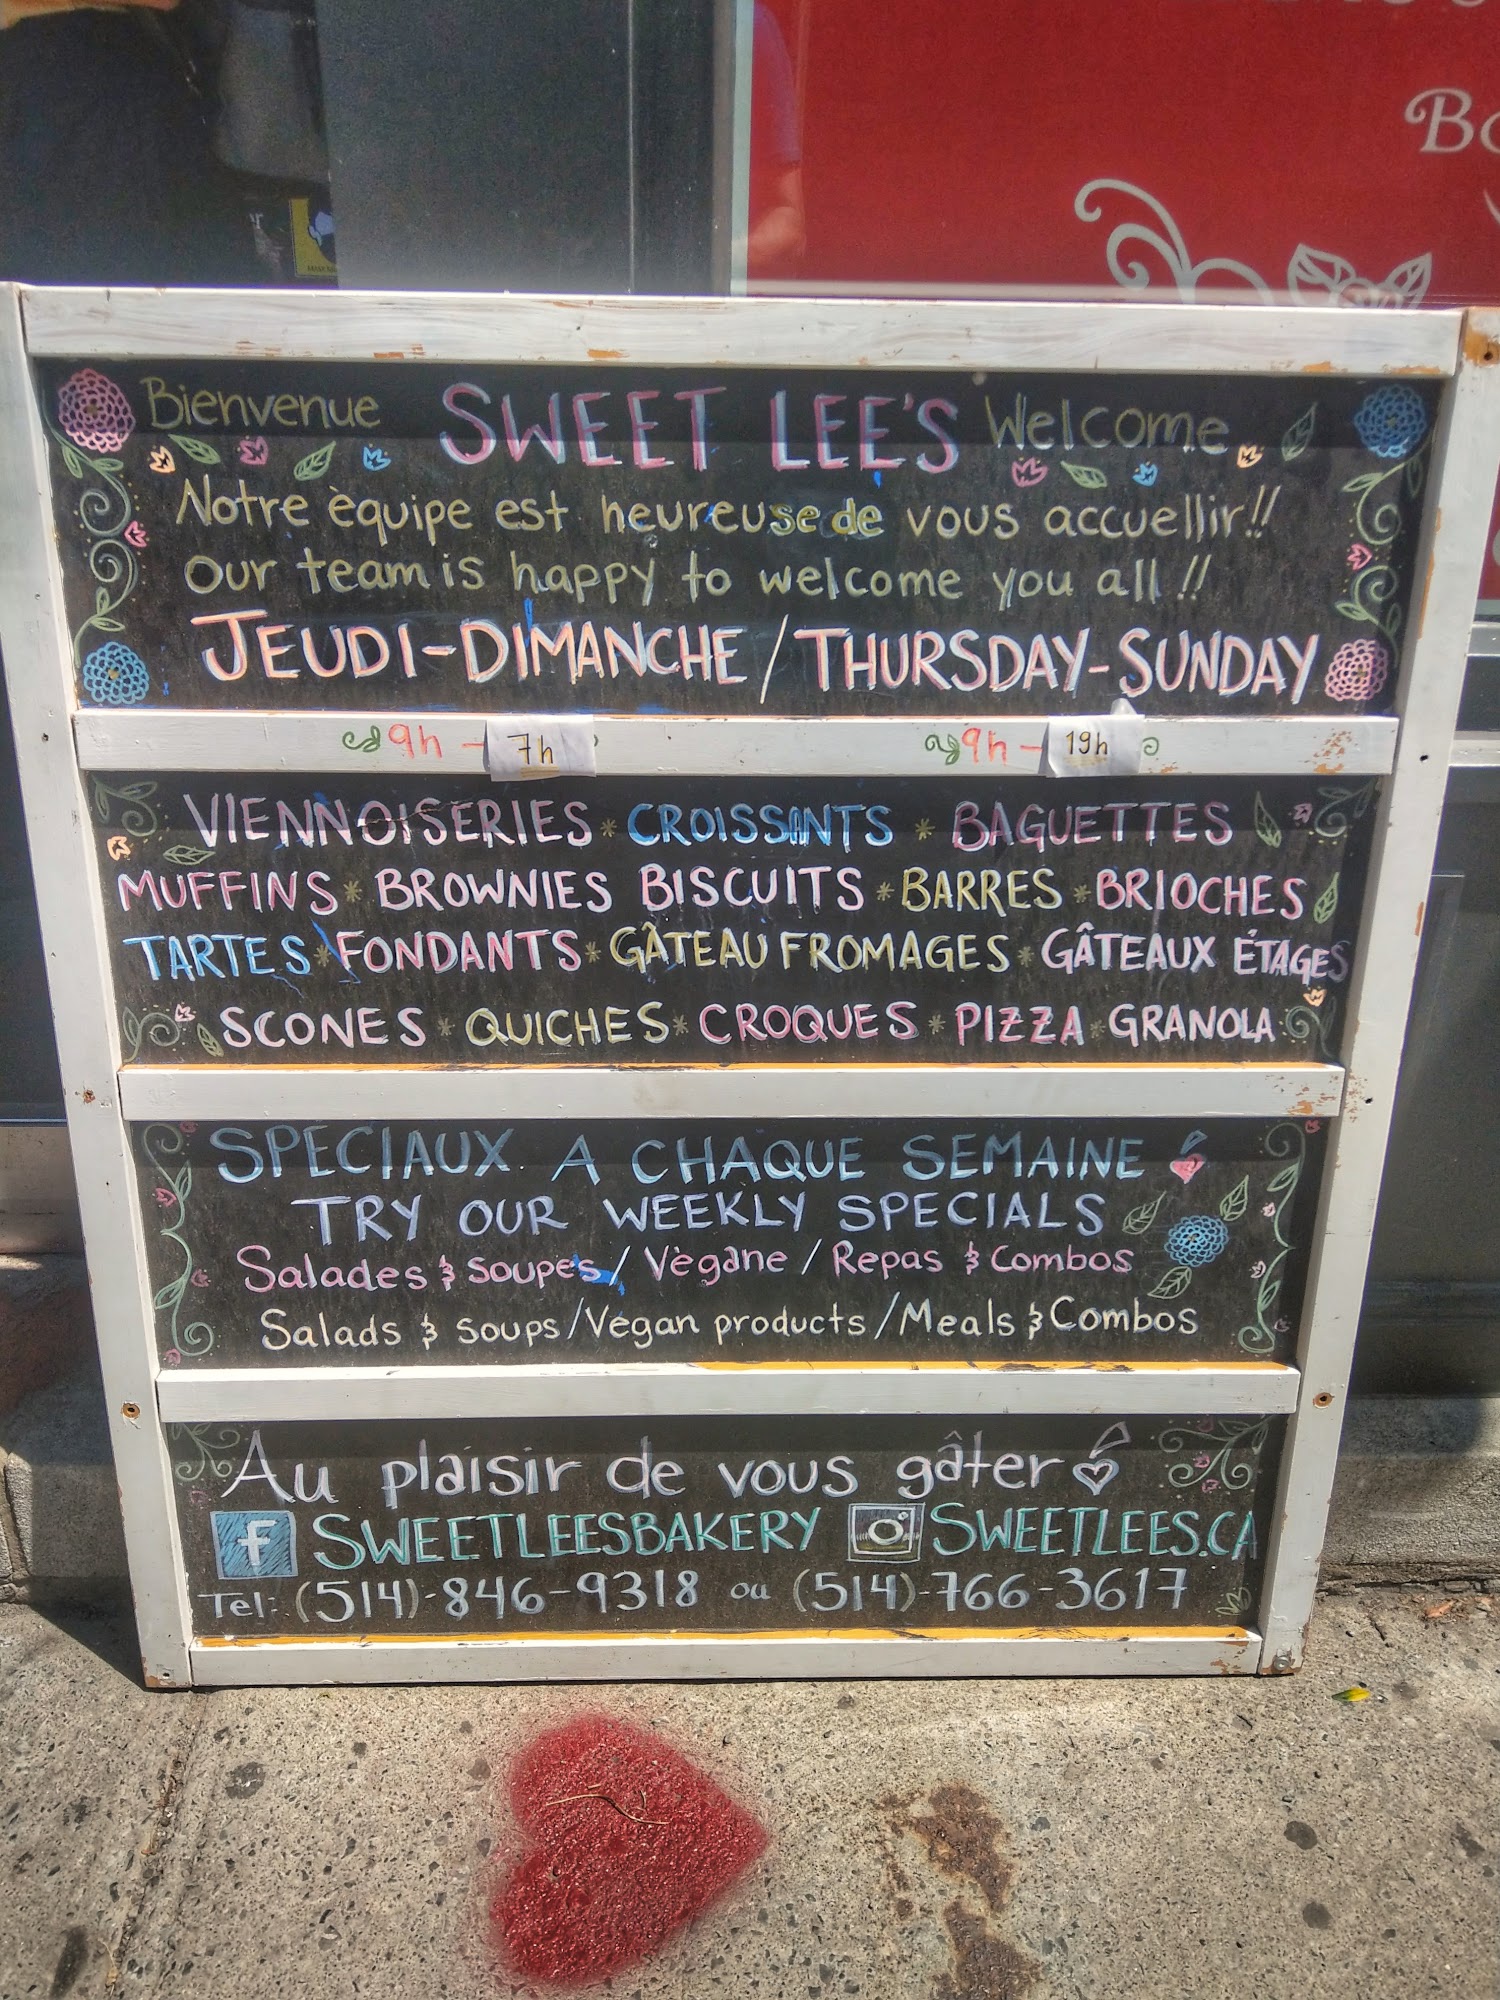 Bo
Bienvenue SWEET LEE'S Welcome
Notre èquipe est heureuse de vous accuellir!!
Our team is happy to welcome you all!!
JEUDI-DIMANCHE / THURSDAY-SUNDAY
9h - 7h 9h - 19h
VIENNOISERIES * CROISSANTS * BAGUETTES
MUFFINS * BROWNIES BISCUITS * BARRES * BRIOCHES
TARTES * FONDANTS * GÂTEAU FROMAGES * GÂTEAUX ÉTAGES
SCONES * QUICHES * CROQUES * PIZZA * GRANOLA
SPECIAUX A CHAQUE SEMAINE
TRY OUR WEEKLY SPECIALS
Salades & soupes / Vègane / Repas & Combos
Salads & soups / Vegan products / Meals & Combos
Au plaisir de vous gâter
f SWEETLEESBAKERY SWEETLEES.CA
Tel: (514)-846-9318 ou (514)-766-3617